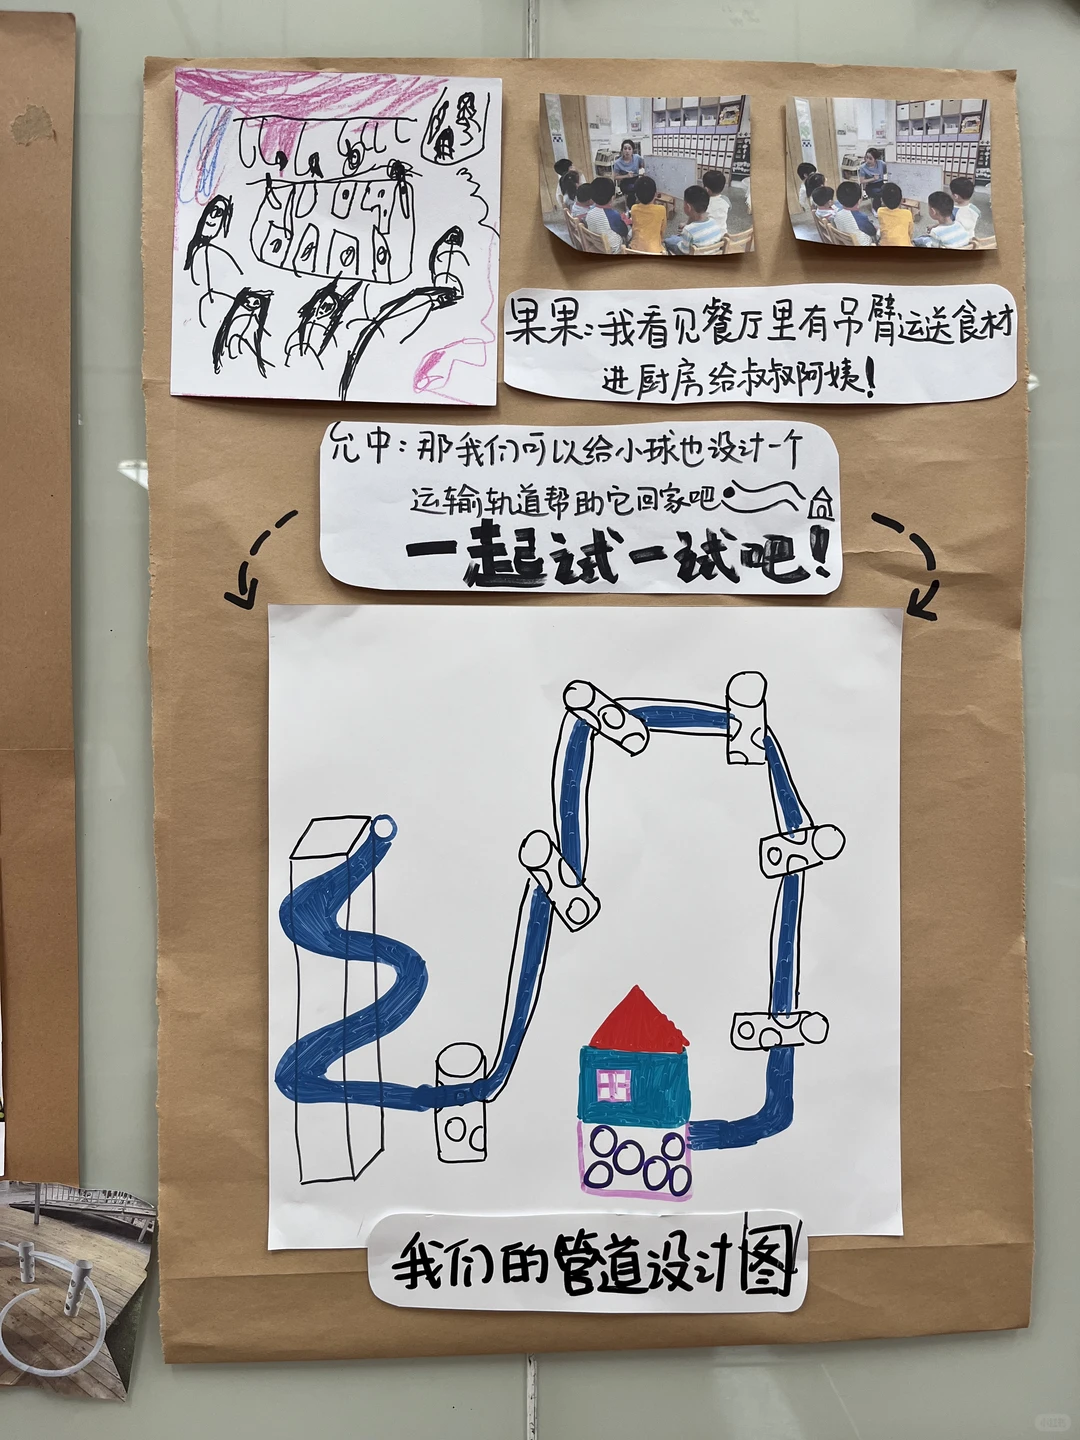 果果:我看见餐厅里有吊臂运送食材
进厨房给叔叔阿姨!
允中:那我们可以给小球也设计一个
运输轨道帮助它回家吧
一起试一试吧!
我们的管道设计图